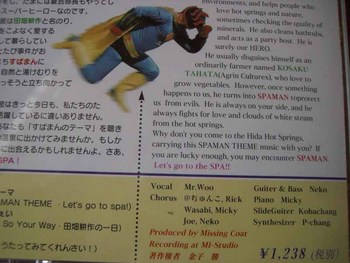 environments, and helps people who
love hot springs and nature,
sometimes checking the quality of
minerals. He also cleans bathtubs,
and acts as a party host. He is
surely our HERO.
He usually disguises himself as an
ordinarily farmer named KOSAKU
TAHATA(Agrin Cultures), who love to
grow vegetables. However, once something
happens to us, he turns into SPAMAN to protect
us from evils. He is always on your side, and he
always fights for love and clouds of white steam
from the hot springs.
Why don't you come to the Hida Hot Springs,
carrying this SPAMAN THEME music with you? If
you are lucky enough, you may encounter SPAMAN.
Let's go to the SPA!!
スーパーヒーローなのです。
は田畑耕作と名のり、
をこよなく愛する
して暮らしてい
たび事件がお
すぱまんに
自然と湯けむりを
っそうと立ち向かって
はきっと今日も、私たちの
躍しているに違いありません。
なたも「すぱまんのテーマ」を聴き
泉に出かけてみませんか。もし
に出会えるかもしれませんよ。さあ、
SPA!
ーマ
PAMAN THEME・Let's go to spa!)
So Your Way・田畑耕作の一日)
うたってみてくれんさい!)
Vocal Mr.Woo
Chorus @ちゅんこ, Rick
Wasabi, Micky
Joe, Neko
Guitar & Bass Neko
Piano Micky
SlideGuiter Kobachang
Synthesizer P-chang
Produced by Missing Coat
Recording at MI-Studio
著作権者 金子 勝
¥1,238 (税別)